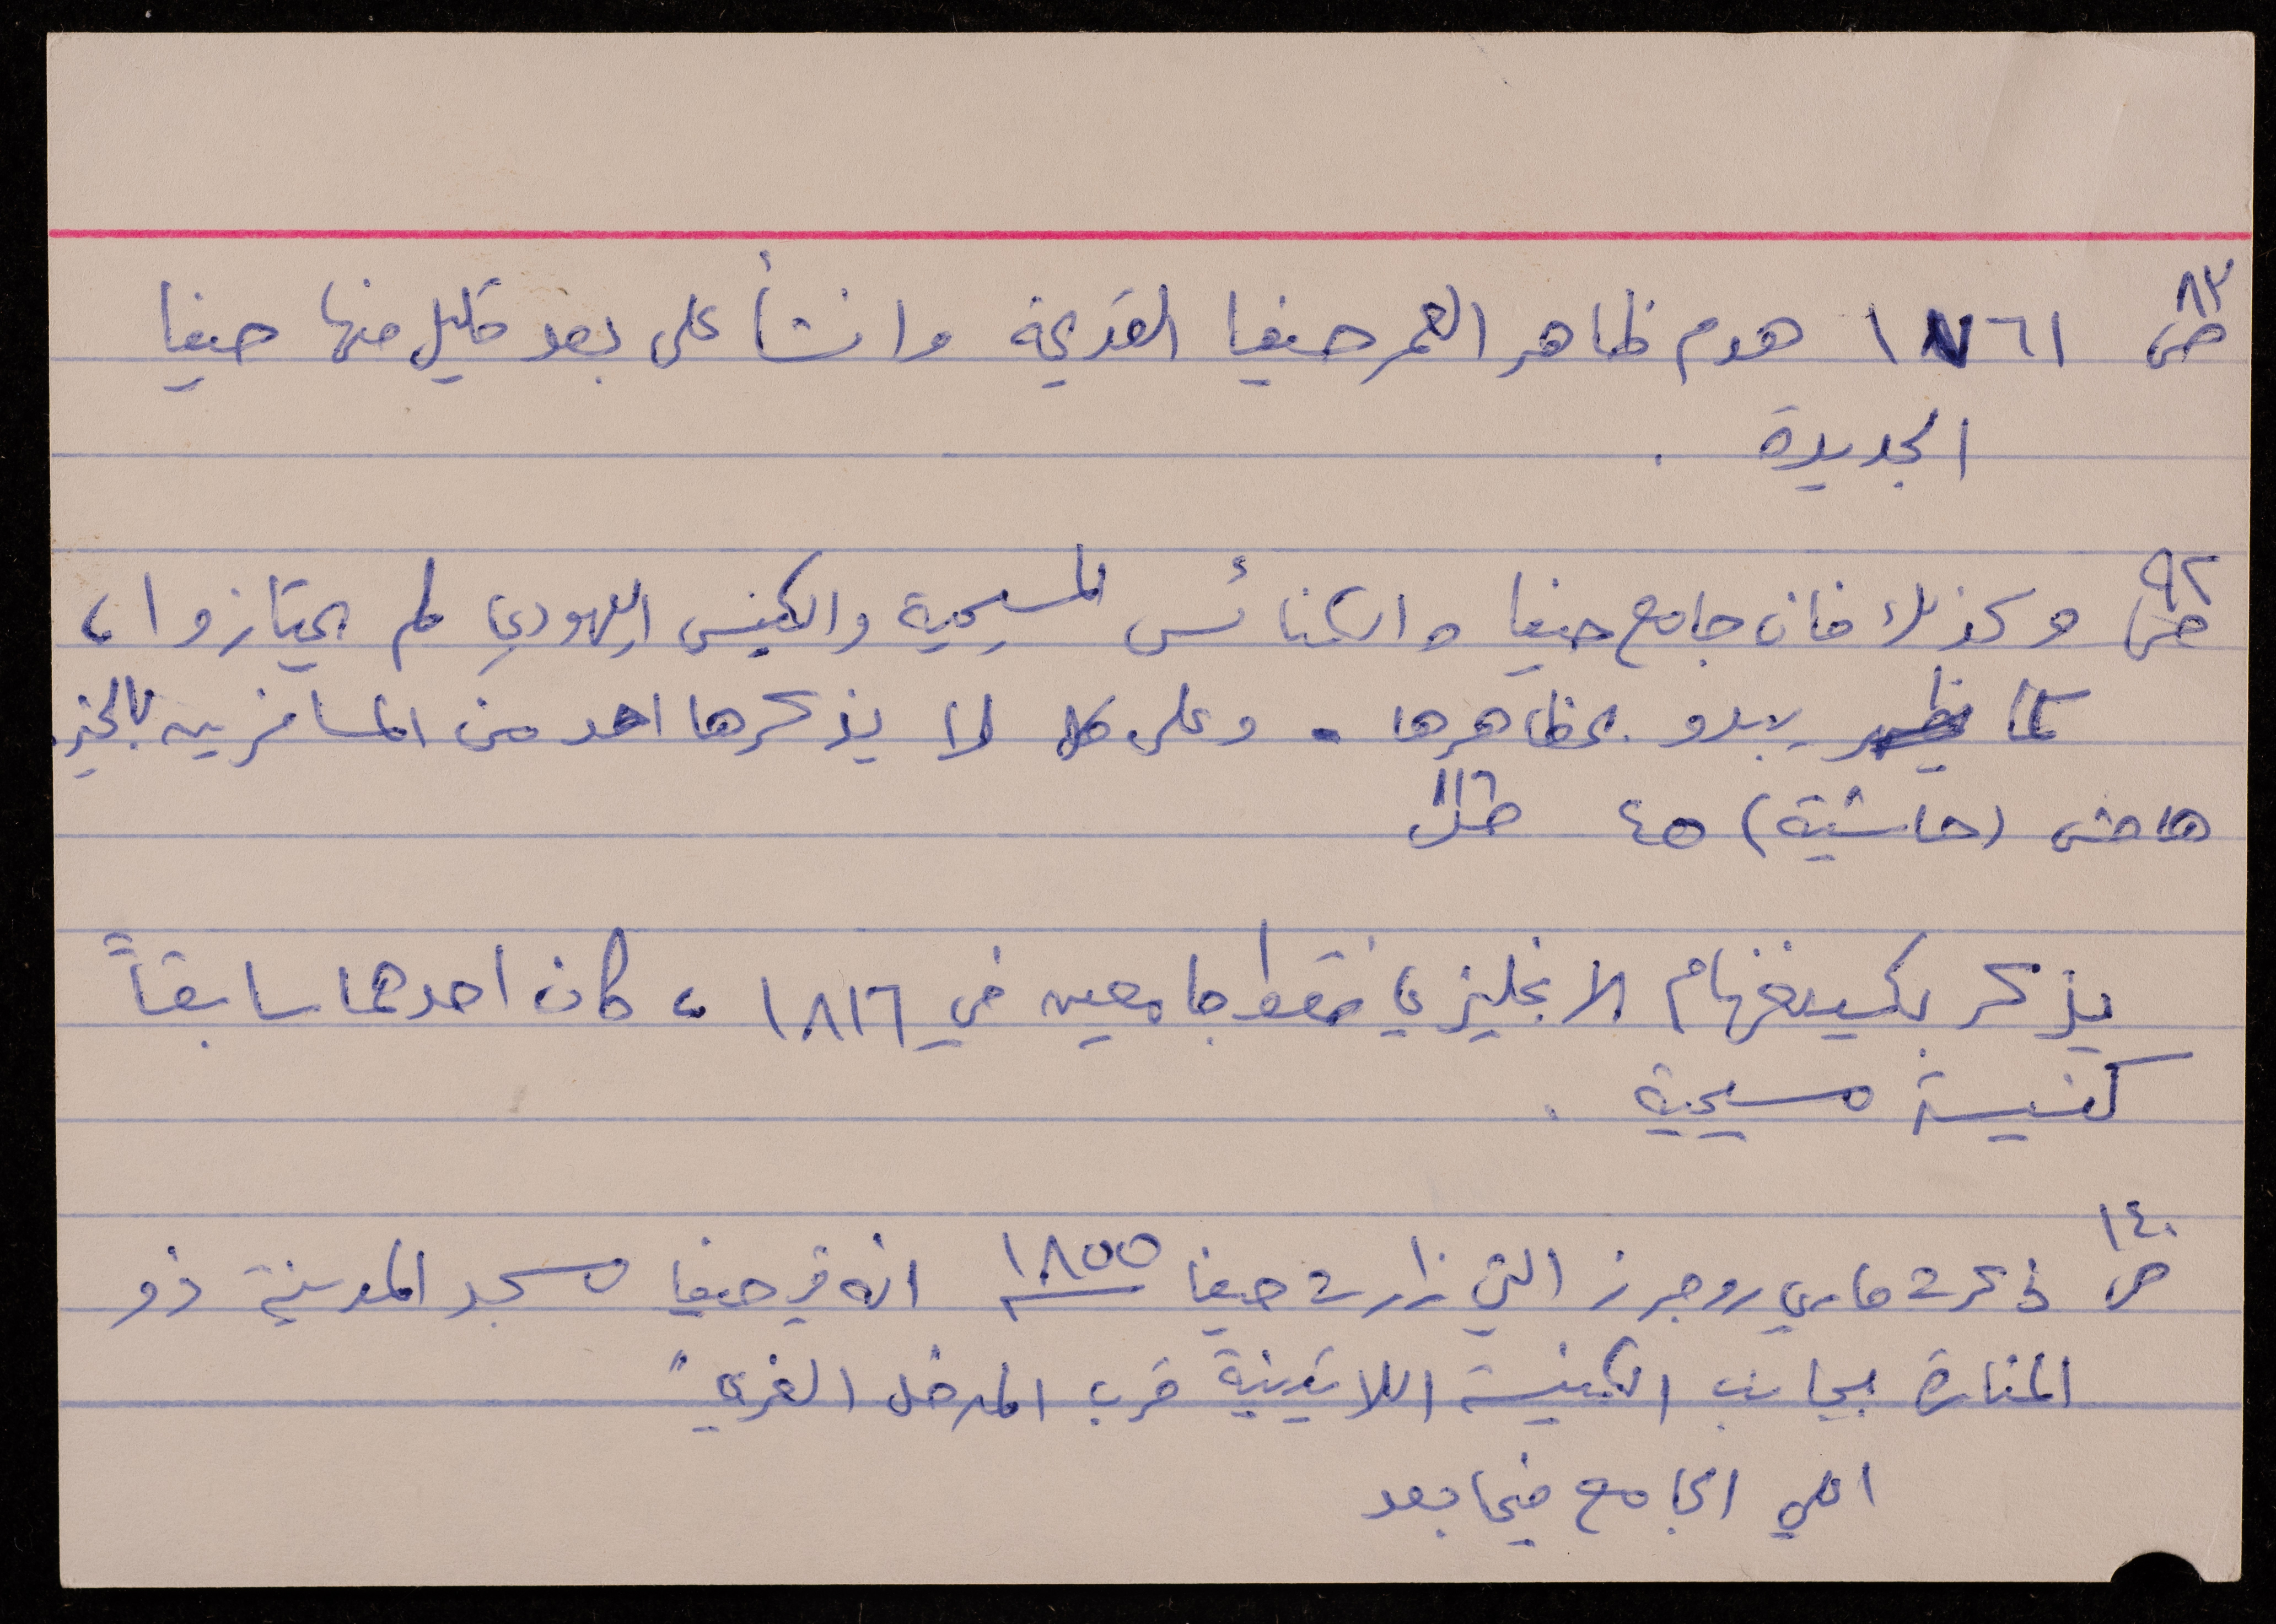 ص ٨٣ ١٧٦١ هدم ظاهر العمر حيفا القديمة وانشأ على بعد قليل منها حيفا
الجديدة .
ص ٩٢ وكذلك فان جامع حيفا والكنائس المسيحية والكنيس اليهودي لم يمتازوا ،
كما يبدو بمظاهرها . وعلى كل لا يذكرها احد من المسافرين بالخير.
هامش (حاشية) ٤٥ ص ١١٦
يذكر بكينغهام الانجليزي فقط جامعين في ١٨١٦ ، كان احدهما سابقاً
كنيسة مسيحية .
ص ١٤٠ ذكرت ماري روجرز التي زارت حيفا ١٨٥٥ انه في حيفا مسجد المدينة ذو
المنارة بجانب الكنيسة اللاتينية قرب المدخل الغربي"
الجامع فيما بعد